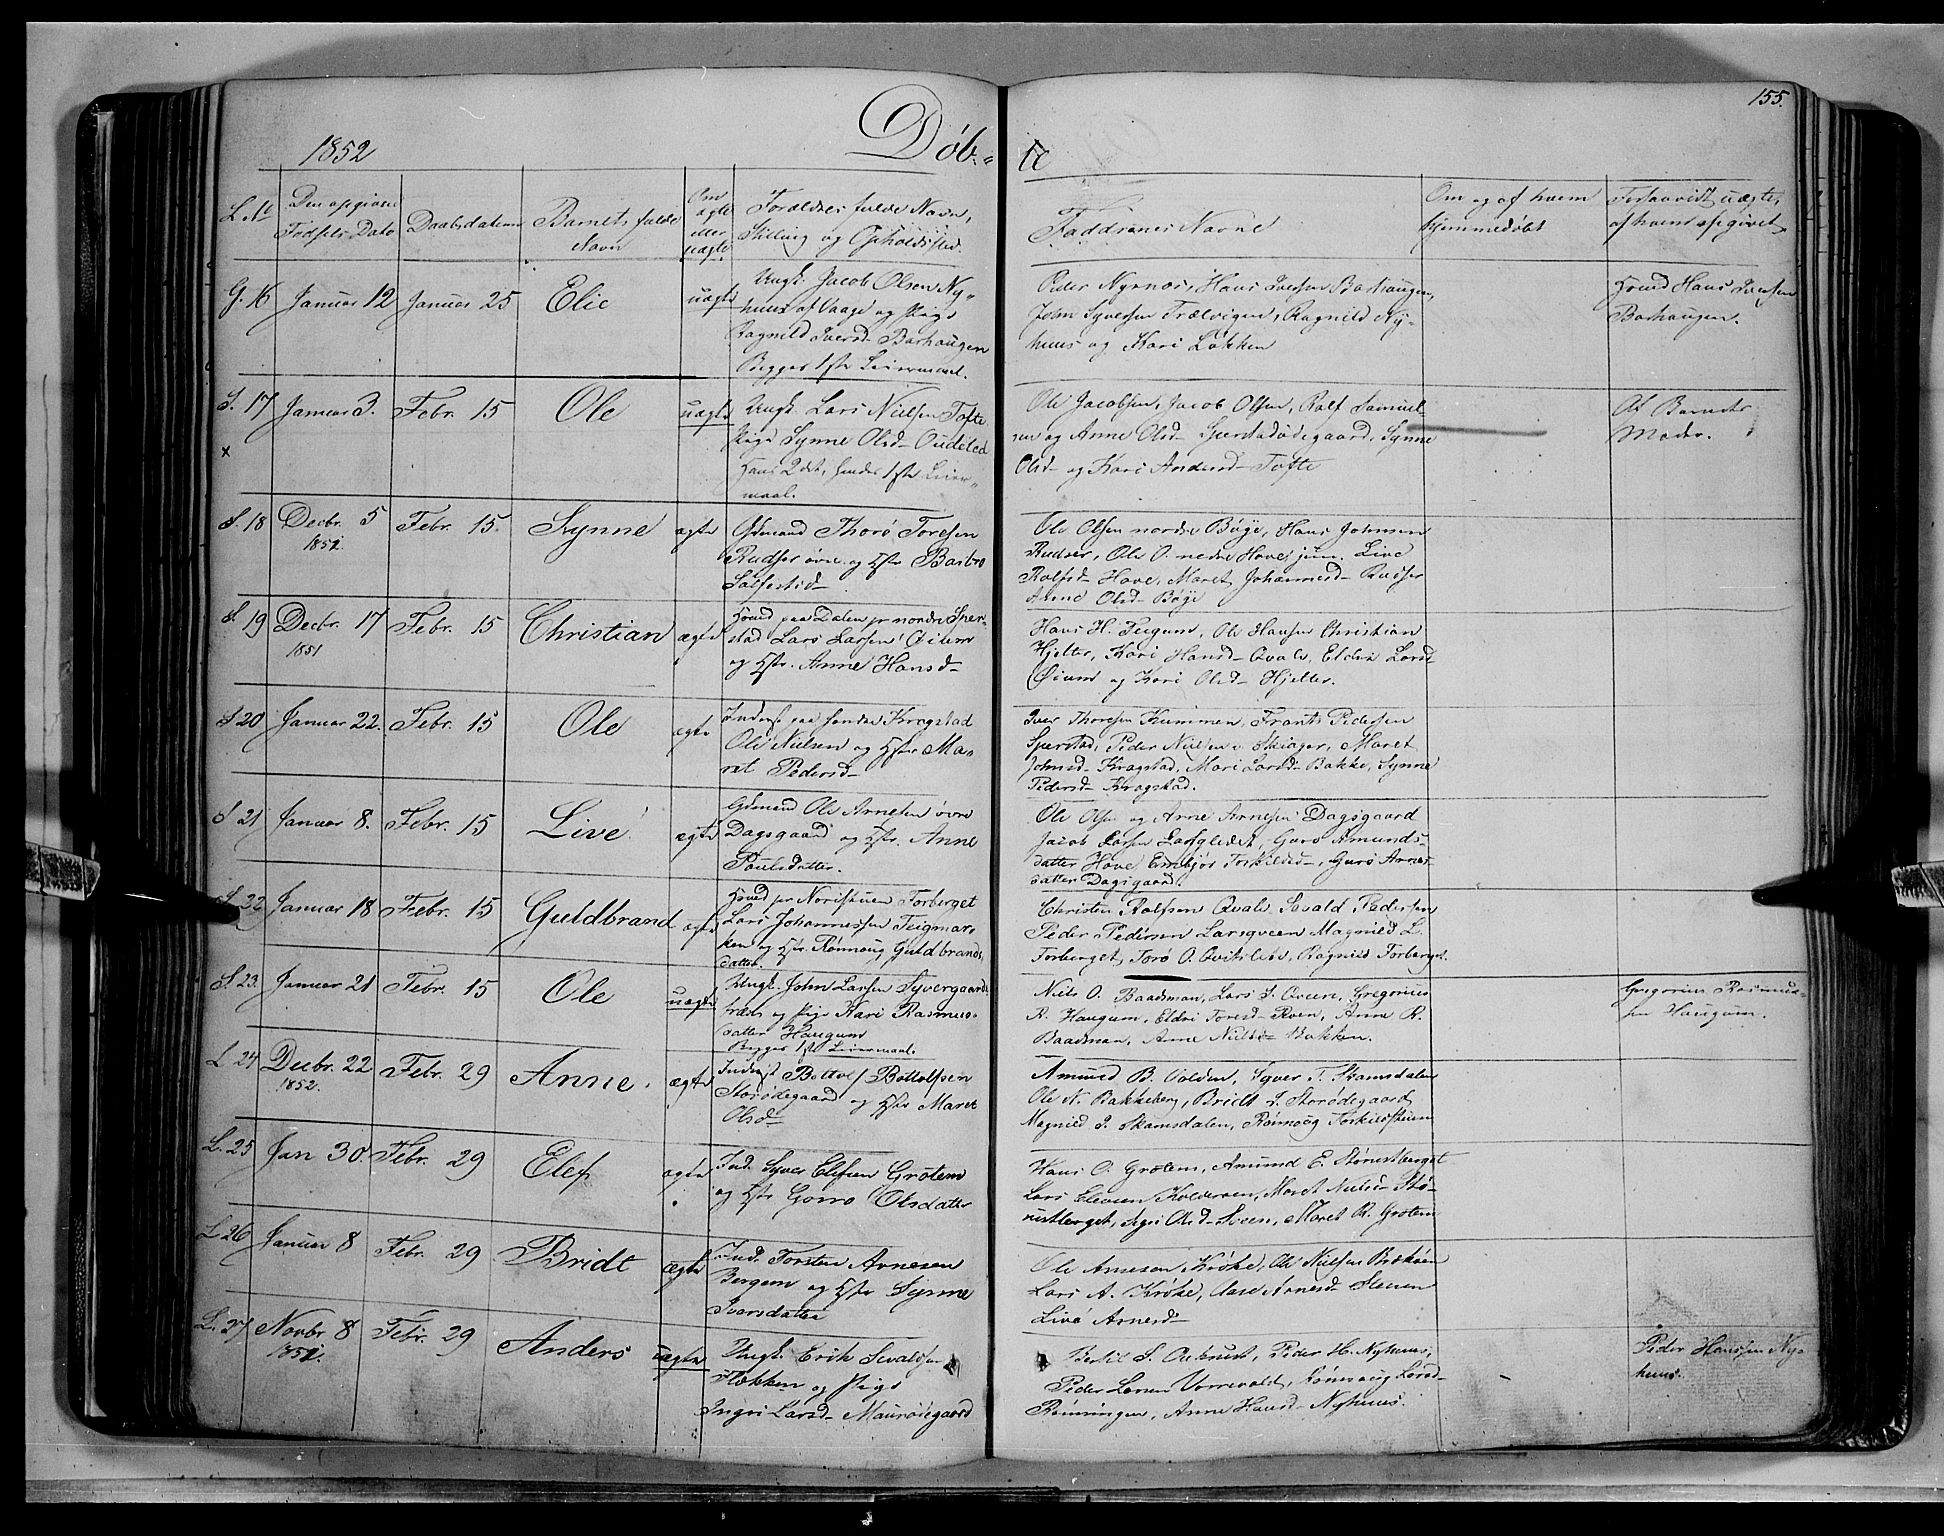 155.
1852
Døb- te
L. No
Den opgivne Fødsels Dato
Daabsdatum
Barnets fulde Navn
Om ægte eller uægte
Forældres fulde Navn, Stilling og Opholdssted.
Faddernes Navne
Om og af hvem hjemmedøbt
Forsaavidt uægte, af hvem opgivet
G. 16 Januar 12 Januar 25 Elie uægte
Ungk. Jacob Olsen Ny-
huus af Vaage og Pige
Ragnild Iversd- Barhaugen
Begges 1ste Leiermaal.
Peder Nyrnæs, Hans Iversen Barhaugen,
John Syversen Trælvigen, Ragnild Ny-
huus og Kari Løkken
Huusd Hans Iversen
Barhaugen.
S. 17 Januar 3. Febr. 15 Ole uægte
x
Ungk. Lars Nielsen Tofte
Pige Synne Olsd-
Hans 2det, hendes 1ste Leier-
maal.
Ole Jacobsen, Jacob Olsen, Rolf Samuel
sen og Anne Olsd- Sperstadødegaard, Synne
Olsd- og Kari Andersd- Tofte
Af Barnets
Moder.
S. 18 Decbr. 5 Febr. 15. Synne ægte
1851.
Gbmand Thorø Toresen
Rudser øvre og Hstr Barbro
Sølfestsd-
Ole Olsen nordre Bøye, Hans Johnsen
Rudser, Ole O. nedre Hove, jun. Live
Rolfsd- Hove, Maret Johannesd- Rudser
Anne Olsd- Bøye
S. 19 Decbr. 17 Febr. 15 Christian ægte
1851
Huusd paa Dalen pr nordre Sper-
stad Lars Larsen Øium
og Hstr. Anne Hansd-
Hans H. Teigum, Ole Hansen Christian
Hjelter, Kari Hansd- Qvale, Eldri Larsd
Øium og Kari Olsd- Hjelter.
S 20 Januar 22. Febr. 15 Ole ægte
Inderst paa søndre Kragstad
Ole Nielsen og Hstr Ma-
ret Pedersd-
Iver Thoresen Kummen, Frants Pedersen
Sperstad, Peder Nielsen Skiager, Maret
Johnsd- Kragstad, Mari Larsd- Bakke, Synne
Pedersd- Kragstad.
S 21 Januar 8. Febr. 15 Live ægte
Gbmand Ole Arnesen øvre
Dagsgaard og Hstr. Anne
Poulsdatter.
Ole Olsen og Arne Arnesen Dagsgaard
Jacob Larsen Guro Amunds-
datter Hove Torkildsd-, Guro Arnes-
datter Dagsgaard.
S. 22 Januar 18 Febr. 15 Guldbrand ægte
Huusd pr Noristuen Forberget
Lars Johannessen Teigmar-
ken og Hstr. Rønnoug Guldbrands
datter.
Christen Rolfsen Qvale, Sevald Pedersen
Peder Pedersen Larsqveen Magnild L.
Forberget, Torø O. Ragnild Forberget.
S. 23 Januar 21 Febr. 15 Ole uægte
Ungk. John Larsen Syvergaards-
træet og Pige Kari Rasmus-
datter Haugum
Begges 1ste Leiermaal.
Niels O. Baadsman, Lars S. Qveen, Gregorius
R. Haugum, Eldri Toresd- Anne R.
Baadsman, Anne Nielsd- Bakken.
Gregorius Rasmus-
sen Haugum.
L. 24 Decbr. 22 Febr. 29 Anne. ægte
1852.
Inderst Bottolf Bottolfsen
Storødegaard og Hstr Maret
Olsd-
Amund B. Volden, Syver T. Skamsdalen
Ole N. Bakkeberg, Bridt I. Storødegaard
Magnild I. Skamsdalen, Rønnoug Torkildstuen
L. 25 Jan 30. Febr. 29 Elef ægte
Ind. Syver Elefsen Grotem
og Hstr Gorro Olsdatter
Hans O. Grotem, Amund E. Størustberget
Lars Elevsen Kolderven, Maret Nielsd- Stø-
rustberget, Sigri Olsd- Sveen, Maret R. Grotem
L. 26 Januar 8 Febr. 29 Bridt ægte
Ind. Torsten Arnesen
Bergem og Hstr Synne
Ivarsdatter
Ole Arnesen Krøke, Ole Nielsen
Lars A. Krøke, Aase Arnesd- Steven
Live Arnesd-
L. 27 Novbr 8 Febr. 29 Anders uægte
1851.
Ungk. Erik Sevaldsen
Flækken og Pige
Ingri Larsd- Maurødegaard
Bertil S. Peder H. Nyhuus,
Peder Larsen Rønnoug Larsd-
Rønningen, Anne Hansd- Nyhuus.
Peder Hanssen Ny-
huus.